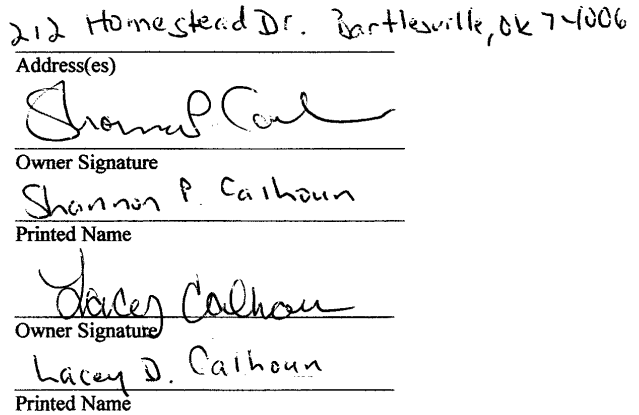 212 Homestead Dr. Bartlesville, OK 74006
Address(es)
Shannon P Calhoun
Owner Signature
Shannon P. Calhoun
Printed Name
Lacey Calhoun
Owner Signature
Lacey D. Calhoun
Printed Name